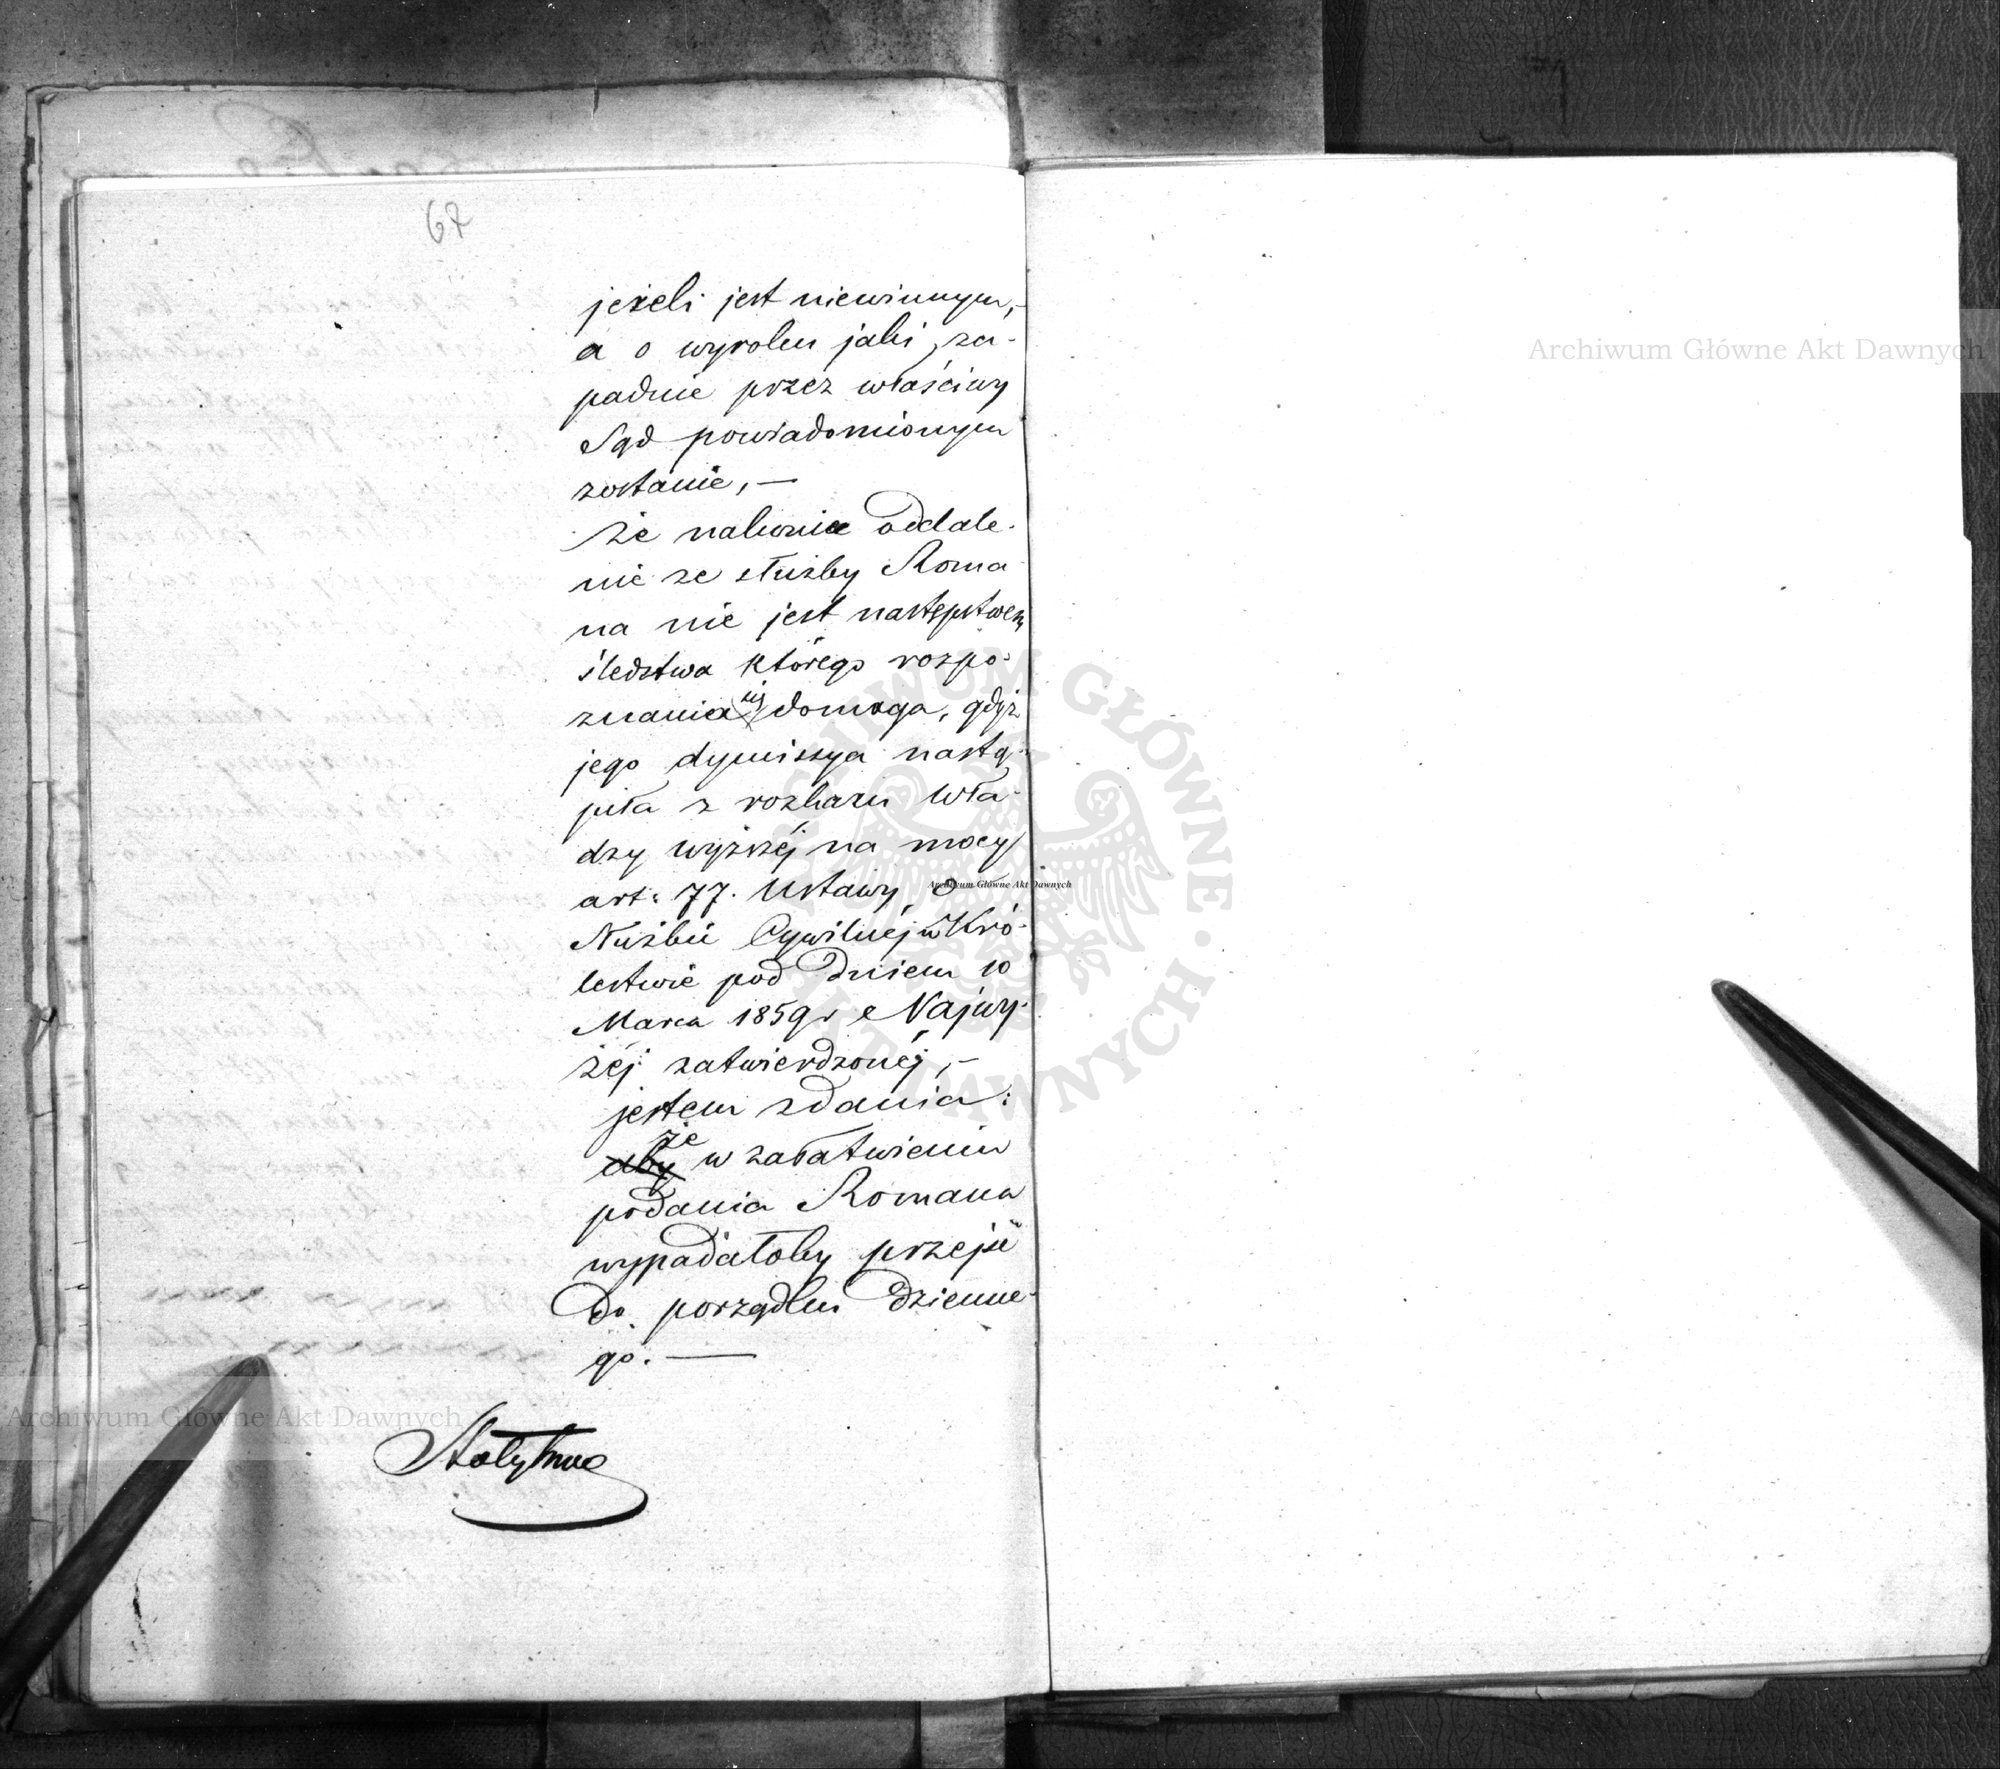 67
jeżeli jest niewinnym,-
a o wyroku jaki za-
padnie przez właściwy
Sąd powiadomionym
zostanie, —
że nakoniec oddale-
nie ze służby Roma
na nie jest następstwem
śledztwa którego rozpo-
znania się domaga, gdyż
jego dymissya nastą-
piła z rozkazu Wła-
dzy wyższéj na mocy
art: 77. Ustawy o
Służbie Cywilnéj w Kró-
lestwie pod dniem 10
Marca 1859 r Najwy-
żéj zatwierdzonéj, —
jestem zdania:
że
aby w załatwieniu
podania Romana
wypadałoby przejść
do porządku dzienne-
go. —
Archiwum Główne Akt Dawnych
Archiwum Główne Akt Dawnych
Archiwum Główne Akt Dawnych
ARCHIWUM GŁÓWNE AKT DAWNYCH